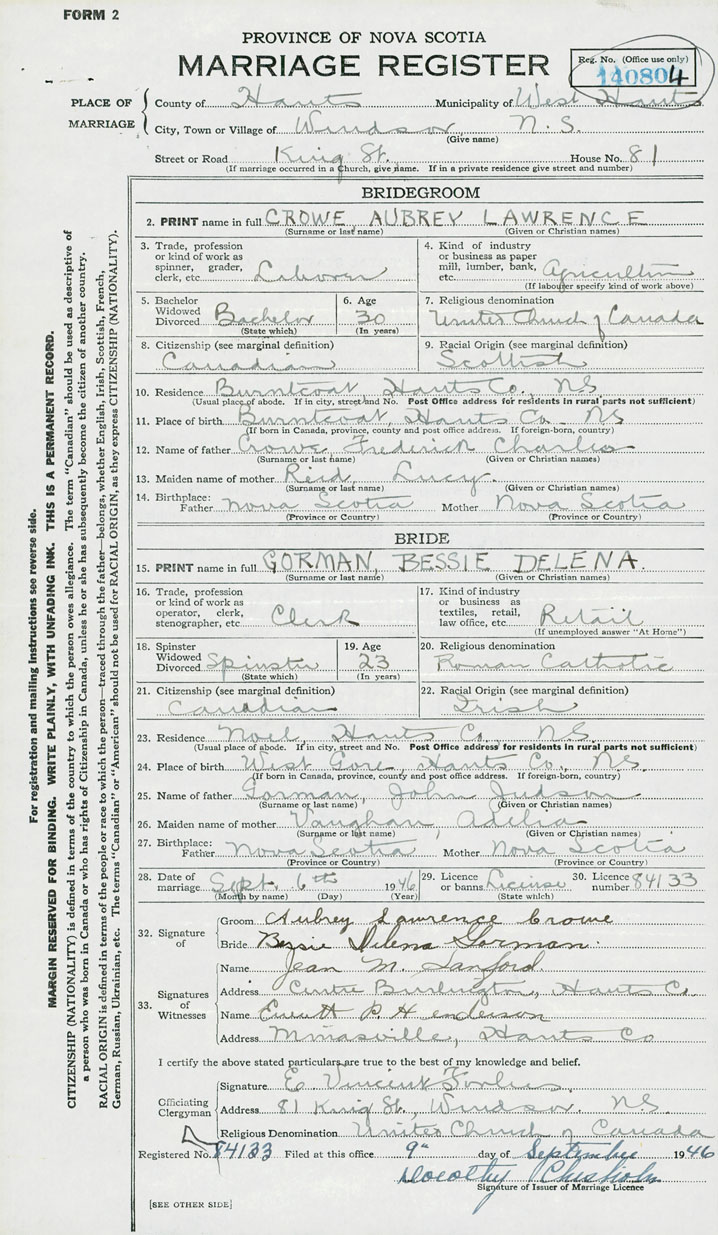 FORM 2
PROVINCE OF NOVA SCOTIA
MARRIAGE REGISTER
Reg. No. (Office use only)
140804
PLACE OF MARRIAGE
County of Hants Municipality of West Hants
City, Town or Village of Windsor N. S.
(Give name)
Street or Road King St. House No. 81
(If marriage occurred in a church, give name. If in a private residence give street and number)
BRIDEGROOM
2. PRINT name in full CROWE, AUBREY LAWRENCE
(Surname or last name) (Given or Christian names)
3. Trade, profession or kind of work as spinner, grader, clerk, etc. Laborer
4. Kind of industry or business as paper mill, lumber, bank, etc. Agriculture
(If labourer specify kind of work above)
5. Bachelor Widowed Divorced Bachelor
(State which)
6. Age 30
(In years)
7. Religious denomination
United Church of Canada
8. Citizenship (see marginal definition)
Canadian
9. Racial Origin (see marginal definition)
Scottish
10. Residence Burntcoat, Hants Co., NS
(Usual place of abode. If in city, street and No. Post Office address for residents in rural parts not sufficient)
11. Place of birth Burntcoat, Hants Co. NS
(If born in Canada, province, county and post office address. If foreign-born, country)
12. Name of father Crowe Frederick Charles
(Surname or last name) (Given or Christian names)
13. Maiden name of mother Reid, Lucy.
(Surname or last name) (Given or Christian names)
14. Birthplace: Father Nova Scotia Mother Nova Scotia
(Province or Country) (Province or Country)
BRIDE
15. PRINT name in full GORMAN, BESSIE DELENA.
(Surname or last name) (Given or Christian names)
16. Trade, profession or kind of work as operator, clerk, stenographer, etc Clerk
17. Kind of industry or business as textiles, retail, law office, etc. Retail
(If unemployed answer "At Home")
18. Spinster Widowed Divorced Spinster
(State which)
19. Age 23
(In years)
20. Religious denomination
Roman Catholic
21. Citizenship (see marginal definition)
Canadian
22. Racial Origin (see marginal definition)
Irish
23. Residence Noel, Hants Co., N.S.
(Usual place of abode. If in city, street and No. Post Office address for residents in rural parts not sufficient)
24. Place of birth West Gore, Hants Co., N.S.
(If born in Canada, province, county and post office address. If foreign-born, country)
25. Name of father Gorman, John Judson
(Surname or last name) (Given or Christian names)
26. Maiden name of mother Vaughan, Adelia
(Surname or last name) (Given or Christian names)
27. Birthplace: Father Nova Scotia Mother Nova Scotia
(Province or Country) (Province or Country)
28. Date of marriage Sept. 6th 1946
(Month by name) (Day) (Year)
29. Licence or banns License
(State which)
30. Licence number 84133
32. Signature of
Groom Aubrey Lawrence Crowe
Bride Bessie Delena Gorman.
33. Signatures of Witnesses
Name Jean M. Sanford.
Address Centre Burlington, Hants Co.
Name Everett P. Henderson
Address Minasville, Hants Co
I certify the above stated particulars are true to the best of my knowledge and belief.
Officiating Clergyman
Signature E. Vincent Forbes.
Address 81 King St., Windsor. N.S.
Religious Denomination United Church of Canada
Registered No. 84133 Filed at this office 9th day of September 1946
Dorothy Chisholm
Signature of Issuer of Marriage Licence
[SEE OTHER SIDE]
For registration and mailing instructions see reverse side.
MARGIN RESERVED FOR BINDING. WRITE PLAINLY, WITH UNFADING INK. THIS IS A PERMANENT RECORD.
CITIZENSHIP (NATIONALITY) is defined in terms of the country to which the person owes allegiance. The term "Canadian" should be used as descriptive of
a person who was born in Canada or who has rights of Citizenship in Canada, unless he or she has subsequently become the citizen of another country.
RACIAL ORIGIN is defined in terms of the people or race to which the person—traced through the father—belongs, whether English, Irish, Scottish, French,
German, Russian, Ukrainian, etc. The terms "Canadian" or "American" should not be used for RACIAL ORIGIN, as they express CITIZENSHIP (NATIONALITY).